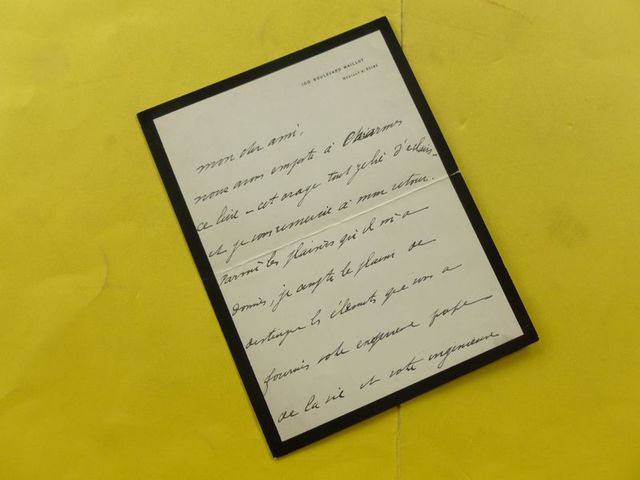 100 BOULEVARD MAILLOT
NEUILLY S/SEINE
mon cher ami,
nous avons emporté à Charmes
ce livre - cet orage tout d'éclairs -
et je vous remercie à mon retour.
Parmi les plaisirs qu'il m'a
donnés, je compte le plaisir de
distinguer les éléments que vous a
fournis votre expérience
de la vie et votre ingénieuse